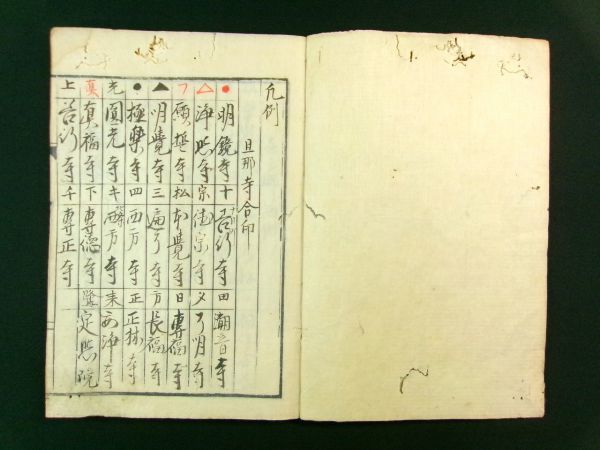 凡例
旦那寺合印
● 明鏡寺 十 西行寺 田 潮音寺
△ 浄照寺 宗 徳宗寺 夕 了明寺
フ 願誓寺 松 本覺寺 日 専福寺
▲ 明覺寺 三 遍了寺 方 長福寺
● 極樂寺 四 西方寺 正 正林寺
光 圓光寺 キ 西方寺 来 安浄寺
真 真福寺 下 専徳寺 定照院
上 寺 千 専正寺